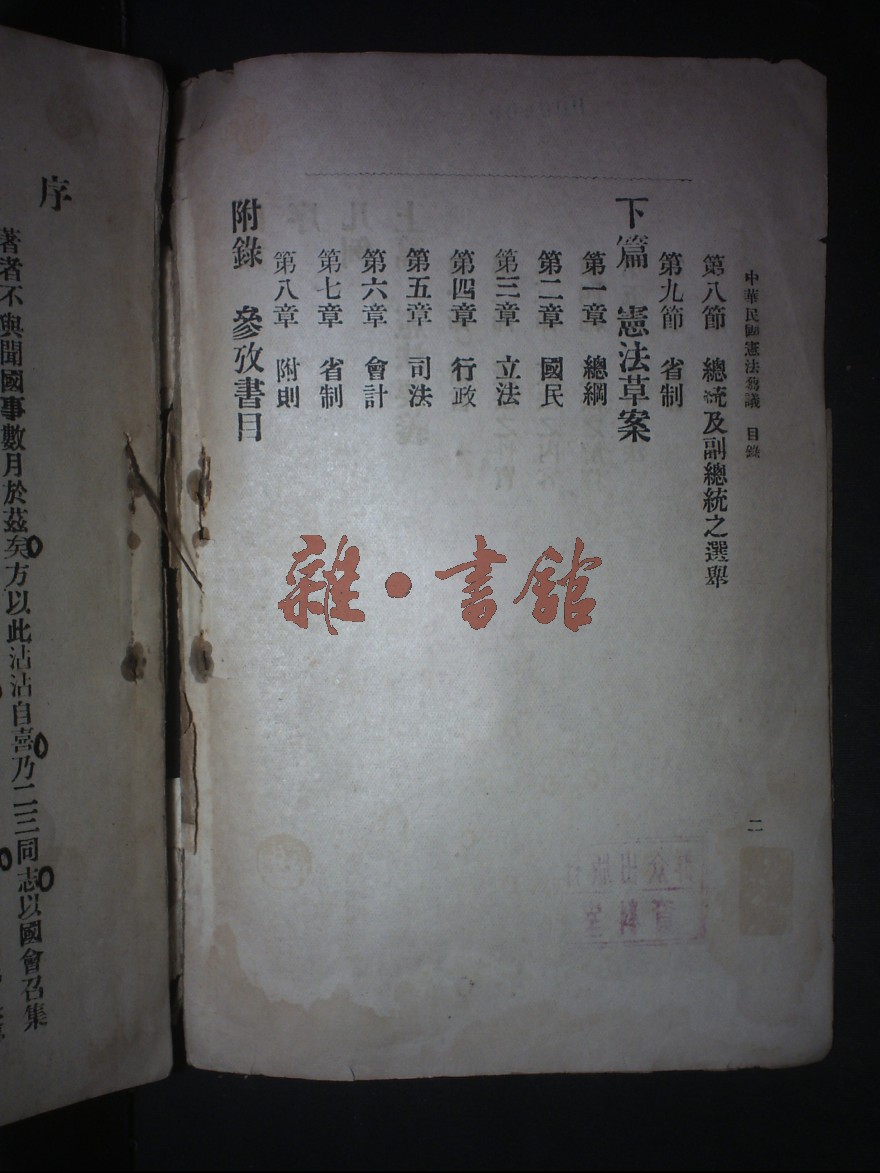 中華民國憲法芻議　目錄
第八節　總統及副總統之選舉
第九節　省制
下篇　憲法草案
第一章　總綱
第二章　國民
第三章　立法
第四章　行政
第五章　司法
第六章　會計
第七章　省制
第八章　附則
附錄　參攷書目
二
雜·書館
序
著者不與聞國事數月於茲矣方以此沾沾自喜乃二三同志以國會召集